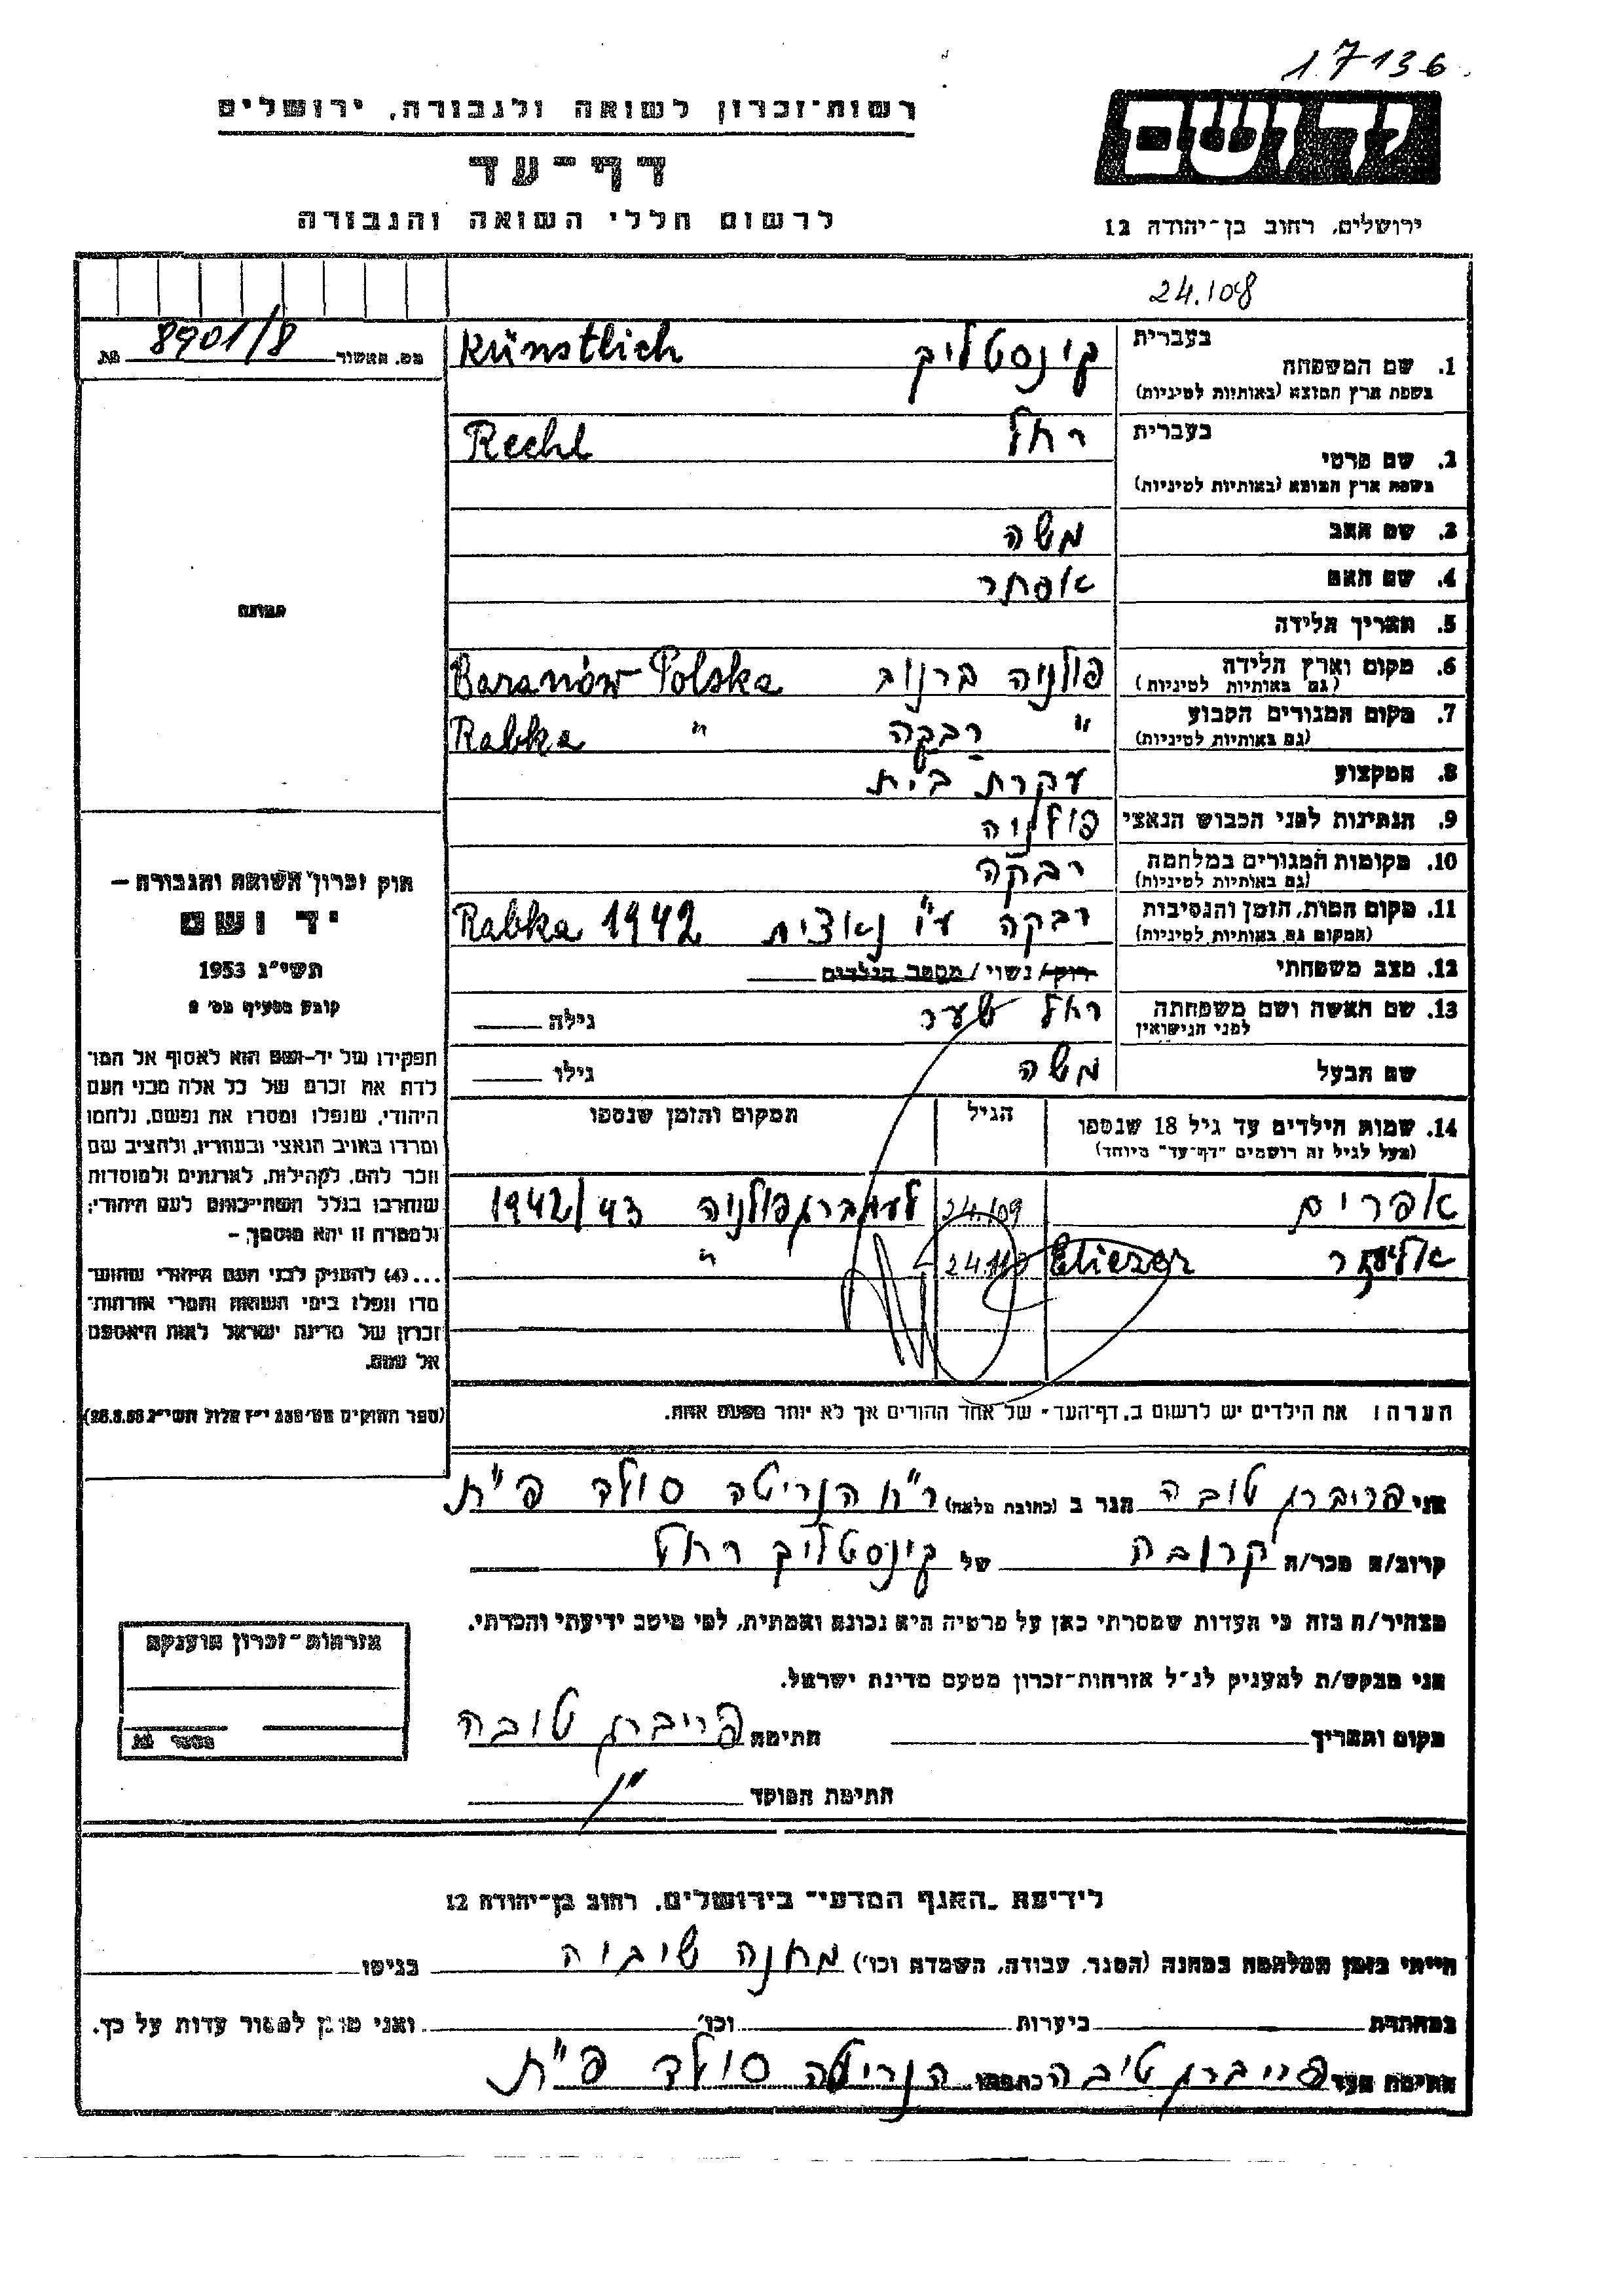 17136
רשות־זכרון לשואה ולגבורה, ירושלים
יד ושם
דף־עד
לרשום חללי השואה והגבורה
ירושלים, רחוב בן־יהודה 12
24.108
מס. האשור 8901/8
1. שם המשפחה בעברית קינסטליך Künstlich
בשפת ארץ המוצא (באותיות לטיניות)
2. שם פרטי בעברית רחל Rechl
בשפת ארץ המוצא (באותיות לטיניות)
3. שם האב משה
4. שם האם אסתר
5. תאריך הלידה
6. מקום וארץ הלידה פולניה ברנוב Baranów Polska
(גם באותיות לטיניות)
7. מקום המגורים הקבוע " רבקה Rabka "
(גם באותיות לטיניות)
8. המקצוע עקרת בית
9. הנתינות לפני הכבוש הנאצי פולניה
10. מקומות המגורים במלחמה רבקה
(גם באותיות לטיניות)
11. מקום המות, הזמן והנסיבות רבקה ע"י נאצית Rabka 1942
(המקום גם באותיות לטיניות)
12. מצב משפחתי רווק / נשוי / מספר הילדים
13. שם האשה ושם משפחתה רחל גילה
לפני הנישואין
שם הבעל משה גילו
14. שמות הילדים עד גיל 18 שנספו הגיל המקום והזמן שנספו
(מעל לגיל זה רושמים "דף־עד" מיוחד)
אפרים 24.109 פולניה 1942/43
אליעזר Eliezer "
הערה: את הילדים יש לרשום ב"דף־העד" של אחד ההורים אך לא יותר מפעם אחת.
תמונה
חוק זכרון השואה והגבורה –
יד ושם
תשי"ג 1953
קובע בסעיף מס' 2
תפקידו של יד־ושם הוא לאסוף אל המו־
לדת את זכרם של כל אלה מבני העם
היהודי, שנפלו ומסרו את נפשם, נלחמו
ומרדו באויב הנאצי ובעוזריו, ולהציב שם
וזכר להם, לקהילות, לארגונים ולמוסדות
שנחרבו בגלל השתייכותם לעם היהודי;
ולמטרה זו יהא מוסמך –
...(4) להעניק לבני העם היהודי שהוש־
מדו ונפלו בימי השואה והמרי אזרחות־
זכרון של מדינת ישראל לאות היאספם
אל עמם.
אני פרייברג טובה הגר ב (כתובת מלאה) רח' הנריטה סולד פ"ת
קרוב/ה מכר/ה קרובה של קינסטליך רחל
מצהיר/ה בזה כי העדות שמסרתי כאן על פרטיה היא נכונה ואמתית, לפי מיטב ידיעתי והכרתי.
אני מבקש/ת להעניק לנ"ל אזרחות־זכרון מטעם מדינת ישראל.
מקום ותאריך חתימה פרייברג טובה
חתימת הפוקד
אזרחות־זכרון הוענקה
לידיעת "האגף המדעי" בירושלים, רחוב בן־יהודה 12
הייתי בזמן המלחמה במחנה (הסגר, עבודה, השמדה וכו') מחנה בגיטו
במחתרת ביערות וכו' ואני מוכן למסור עדות על כך.
חתימת העד פרייברג טובה כתבתו הנריטה סולד פ"ת